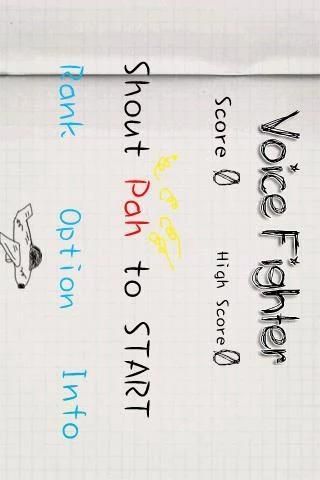 Voice Fighter
Score 0 High Score 0
Shout Pah to START
Rank Option Info